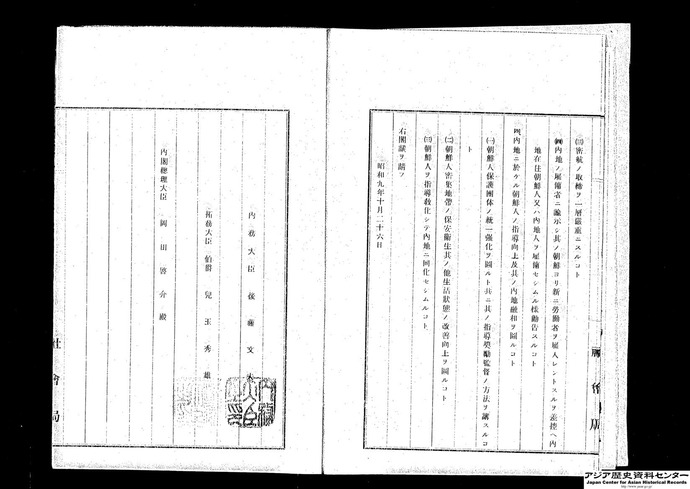 ㈢密航ノ取締ヲ一層嚴重ニスルコト
㈣內地ノ雇傭者ニ諭示シ其ノ朝鮮ヨリ新ニ勞働者ヲ雇入レントスルヲ差控ヘ內
地在住朝鮮人又ハ內地人ヲ雇傭セシムル樣勸告スルコト
四、內地ニ於ケル朝鮮人ノ指導向上及其ノ內地融和ヲ圖ルコト
㈠朝鮮人保護團体ノ統一强化ヲ圖ルト共ニ其ノ指導奬勵監督ノ方法ヲ講スルコ
ト
㈡朝鮮人密集地帶ノ保安衞生其ノ他生活狀態ノ改善向上ヲ圖ルコト
㈢朝鮮人ヲ指導敎化シテ內地ニ同化セシムルコト
右閣議ヲ請フ
昭和九年十月二十六日
內務大臣 後藤文夫
拓務大臣 伯爵 兒玉秀雄
內閣總理大臣 岡田啓介殿
社會局
アジア歴史資料センター
Japan Center for Asian Historical Records